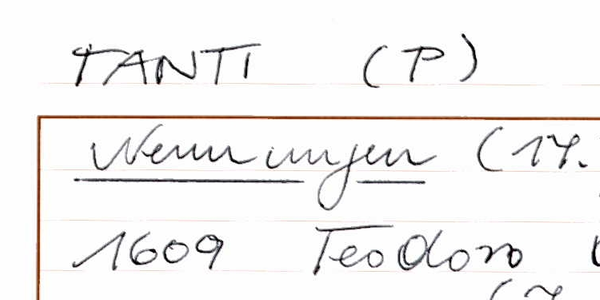 TANTI (P)
Nennungen (17.
1609 Teodoro
(7